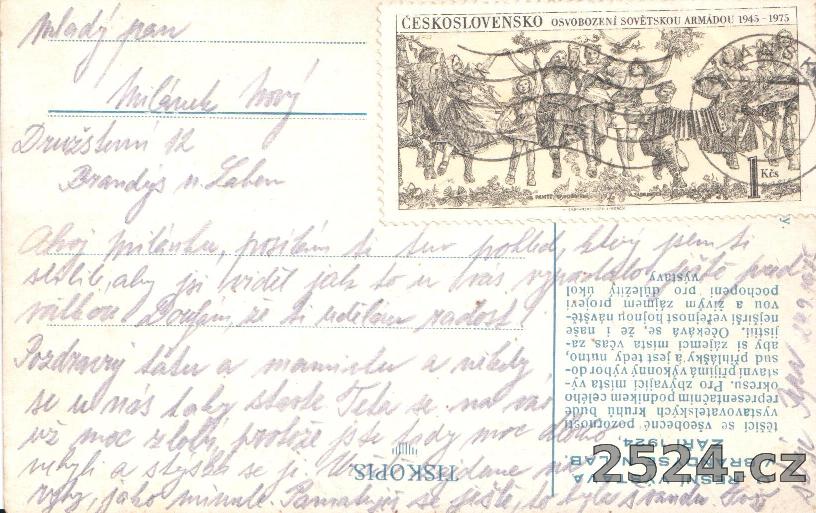 ČESKOSLOVENSKO OSVOBOZENÍ SOVĚTSKOU ARMÁDOU 1945-1975
1 Kčs
Mladý pan
Milánek Nový
Družstevní 12
Brandýs n. Labem
Ahoj Milánku, posílám ti tuto pohled, který jsem ti
slíbil, aby jsi viděl jak to u vás vypadalo ještě před
válkou. Doufám, že ti udělám radost!
Pozdravuj tátu a maminku a někdy
se u nás taky stavte. Teta se na vás
už moc zlobí, protože jste tady moc dlouho
nebyli a stýská se jí.
ryby, jako minule. Pamatuješ se ještě, to byla švanda.
těšící se všeobecné pozornosti
výstavovatelských kruhů bude
representačním podnikem celého
okresu. Pro zbývající místa vý-
stavní přijímá výkonný výbor do-
sud přihlášky a jest tedy nutno,
aby si zájemci místa včas za-
jistili. Očekává se, že i naše
nejširší veřejnost hojnou návště-
vou a živým zájmem projeví
pochopení pro důležitý úkol
výstavy
ZÁŘÍ 1924,
TISKOPIS
2524.cz